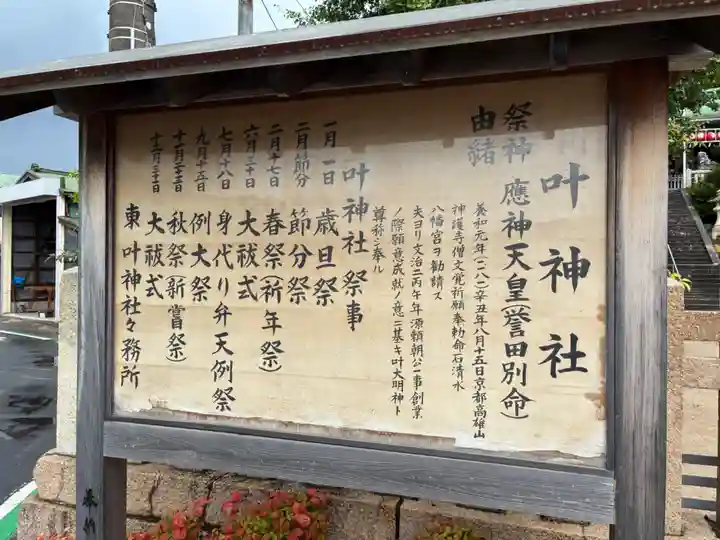 叶神社
祭神 應神天皇(誉田別命)
由緒
養和元年(一一八一)辛丑年八月十五日京都高雄山
神護寺僧文覚祈願奉勅命石清水
八幡宮ヲ勧請ス
夫ヨリ文治二丙午年源頼朝公一事創業
ノ際願意成就ノ意ニ基キ叶大明神ト
尊称シ奉ル
叶神社祭事
一月一日 歳旦祭
二月節分 節分祭
二月十七日 春祭(祈年祭)
六月三十日 大祓式
七月十八日 身代り弁天例祭
九月十五日 例大祭
十一月二十三日 秋祭(新嘗祭)
十二月三十日 大祓式
東叶神社々務所
奉納